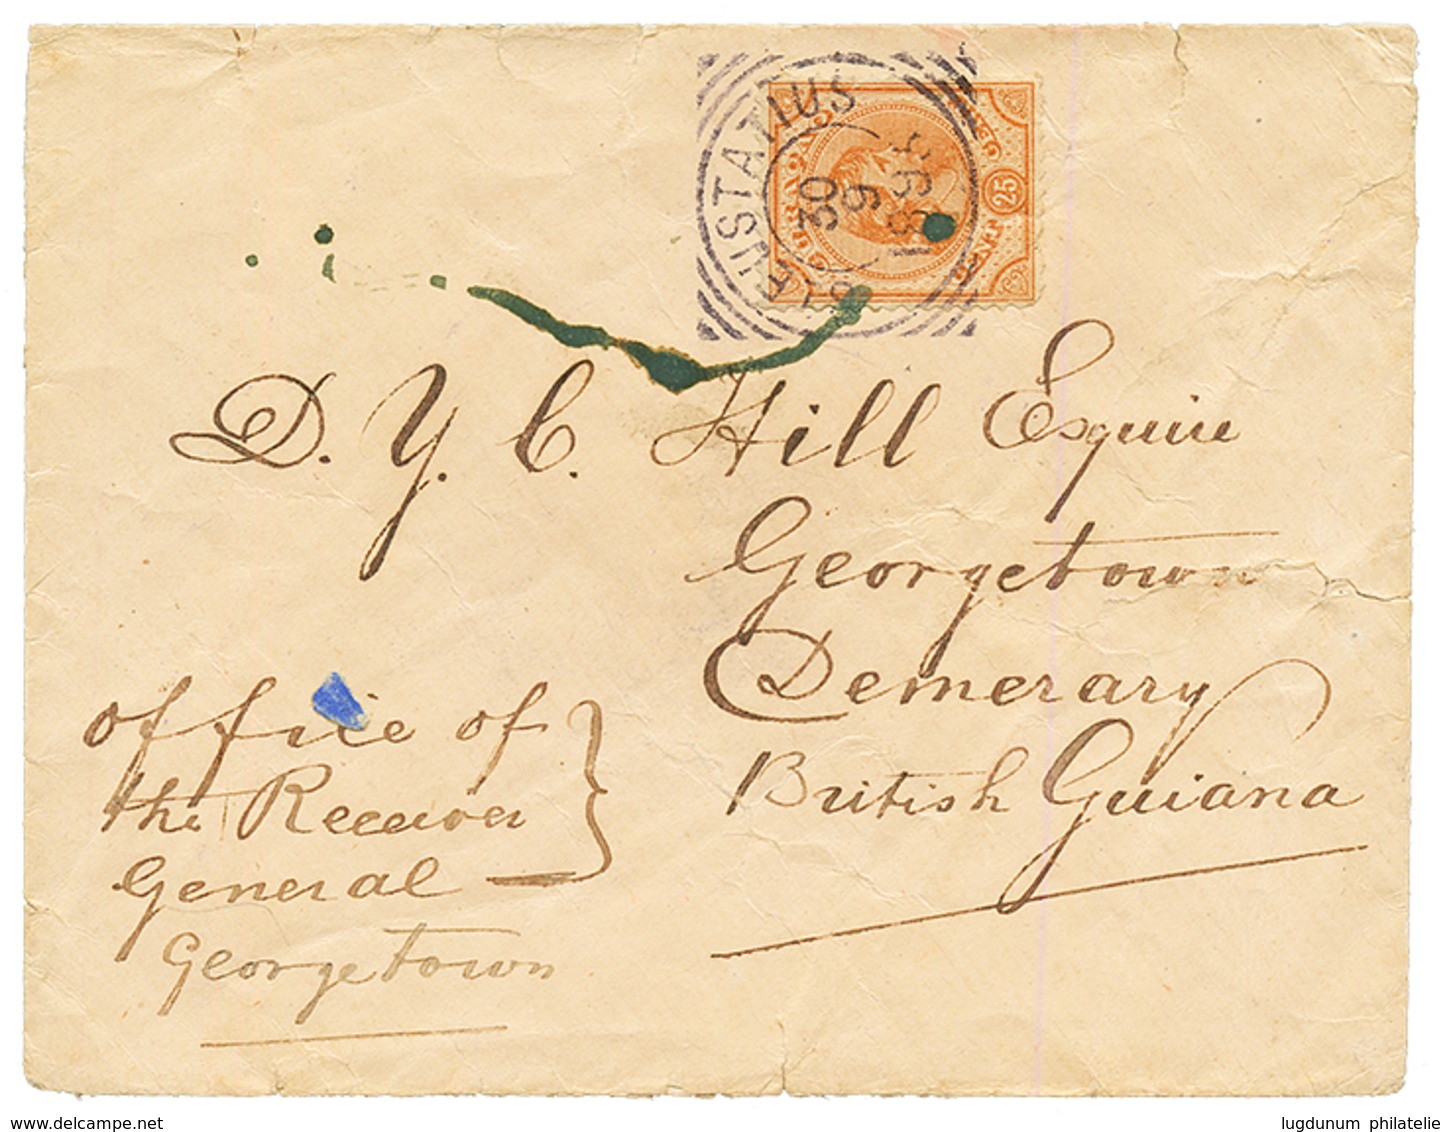 ST EUSTATIUS
30
9
1893
CURAÇAO
25
CENT
D. Y. C. Hill Esquire
Georgetown
Demerary
British Guiana
office of
the Receiver
General
Georgetown
www.delcampe.net
lugdunum philatelie